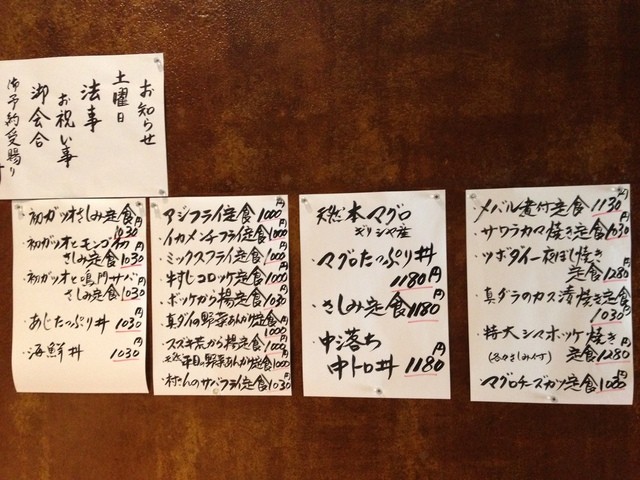 お知らせ
土曜日
法事
お祝い事
御会合
御予約受賜り
・初ガツオさしみ定食1030円
・初ガツオとモンゴイカ
さしみ定食1030円
・初ガツオと鳴門サバ
さしみ定食1030円
・あじたっぷり丼1030円
・海鮮丼1030円
・アジフライ定食1000円
・イカメンチフライ定食1000円
・ミックスフライ定食1000円
・牛すじコロッケ定食1000円
・ホッケから揚定食1030円
・真ダイの野菜あんかけ定食1000円
・スズキ荒から揚定食1000円
・天然平目の野菜あんかけ定食1000円
・村さんのサバフライ定食1030円
天然本マグロ
ギリシャ産
・マグロたっぷり丼
1180円
・さしみ定食1180円
・中落ち
中トロ丼1180円
・メバル煮付定食1130円
・サワラカマ焼き定食1030円
・ツボダイ一夜ぼし焼き
定食1280円
・真ダラのカス漬焼き定食
1030円
・特大シマホッケ焼き
(各小さしみ付) 定食1280円
・マグロチーズカツ定食1000円